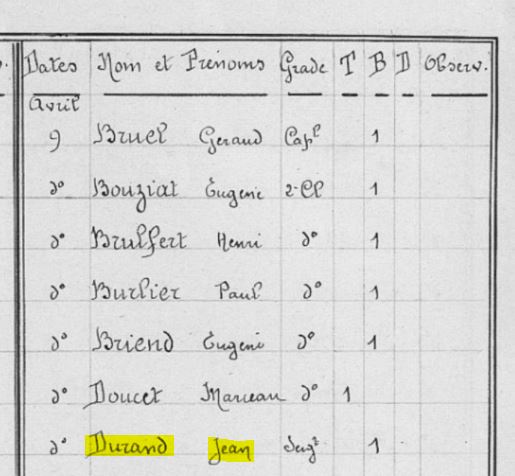 Dates Nom et Prénoms Grade T B D Observ.
Avril
9 Bruel Geraud Capl 1
do Bouziat Eugène 2e Cl 1
do Brulfert Henri do 1
do Burlier Paul do 1
do Briend Eugène do 1
do Doucet Marceau do 1
do Durand Jean Sergt 1